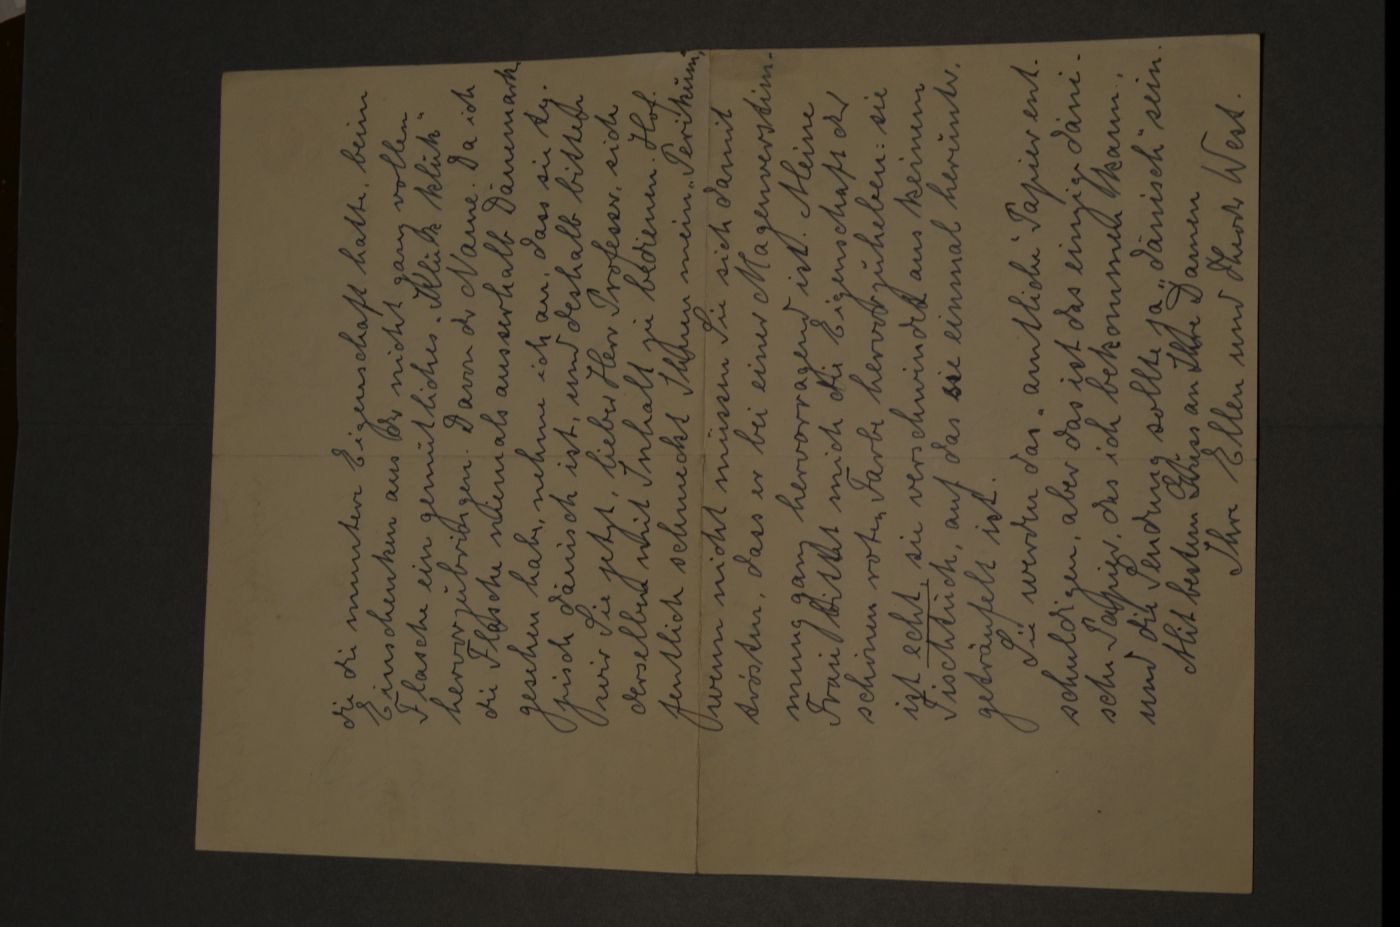 die die muntere Eigenschaft hatte, beim
Einschenken aus der nicht ganz vollen
Flasche ein gemütliches „Klük klük“
hervorzubringen. Davon der Name. Da ich
die Flasche niemals ausserhalb Dänemark
gesehen habe, nehme ich an, dass sie ty-
pisch dänisch ist, und deshalb bitten
wir Sie jetzt, lieber Herr Professor, sich
derselben mit Inhalt zu bedienen. Hof-
fentlich schmeckt Ihnen mein „Perikum“,
wenn nicht müssen Sie sich damit
trösten, dass er bei einer Magenverstim-
mung ganz hervorragend ist. Meine
Frau bittet mich die Eigenschaft der
schönen roten Farbe hervorzuheben: sie
ist echt, sie verschwindet aus keinem
Tischtuch, auf das sie einmal herunter-
geträufelt ist.
Sie werden das „amtliche“ Papier ent-
schuldigen, aber das ist das einzige däni-
sche Papier, das ich bekommen kann,
und die Sendung sollte ja „dänisch“ sein.
Mit bestem Gruss an Ihre Damen
Ihre Ellen und Thodr West.